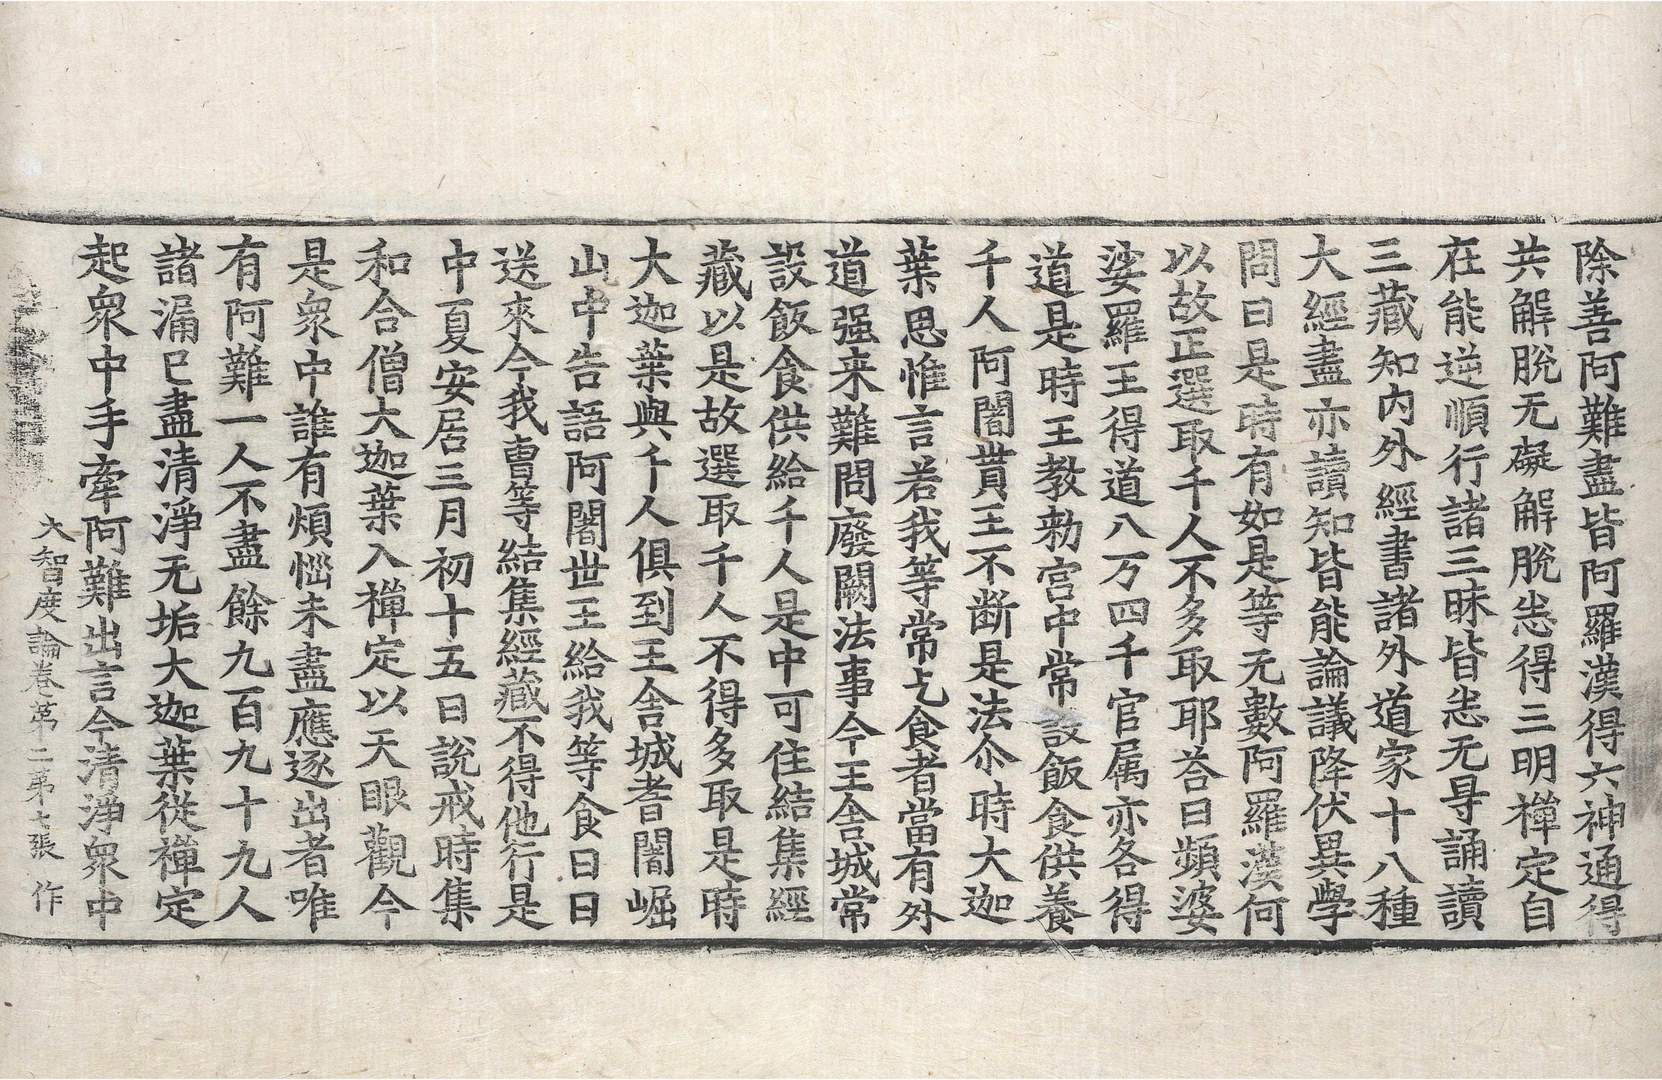 除善阿難盡皆阿羅漢得六神通得
共解脫无礙解脫悉得三明禪定自
在能逆順行諸三昧皆悉无㝵誦讀
三藏知內外經書諸外道家十八種
大經盡亦讀知皆能論議降伏異學
問曰是時有如是等无數阿羅漢何
以故正選取千人不多取耶荅曰頻婆
娑羅王得道八万四千官属亦各得
道是時王教勑宮中常設飯食供養
千人阿闍貰王不断是法尒時大迦
葉思惟言若我等常乞食者當有外
道强来難問廢闕法事今王舍城常
設飯食供給千人是中可住結集經
藏以是故選取千人不得多取是時
大迦葉與千人俱到王舍城耆闍崛
山中告語阿闍世王給我等食日日
送來今我曹等結集經藏不得他行是
中夏安居三月初十五日說戒時集
和合僧大迦葉入禪定以天眼觀今
是衆中誰有煩惱未盡應逐出者唯
有阿難一人不盡餘九百九十九人
諸漏已盡清淨无垢大迦葉從禪定
起衆中手牽阿難出言今清淨衆中
大智度論卷苐二苐七張 作